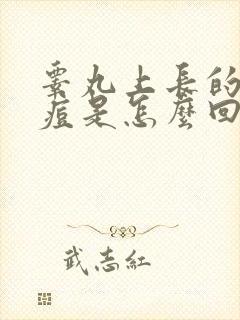 睾丸上長的
痘是怎麼回
武志紅